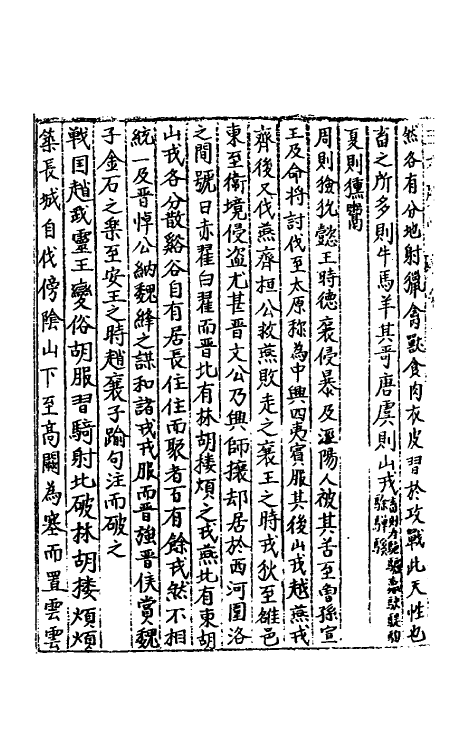 然各有分地射獵禽獸食肉衣皮習於攻戰此天性也
畜之所多則牛馬羊其哥唐虞則山戎
夏則獯鬻
周則獫狁懿王時德衰侵暴及涇陽人被其苦至曾孫宣
王及命將討伐至太原称為中興四夷賓服其後山戎越燕戎
齊後又伐燕齊桓公救燕敗走之襄王之時戎狄至雒邑
東至衛境侵盗尤甚晋文公乃興師攘却居於西河圁洛
之間號曰赤翟白翟而晋北有林胡搂煩之戎燕北有東胡
山戎各分散谿谷自有居長住住而聚者百有餘戎然不相
統一及晋悼公納魏絳之謀和諸戎戎服而晋強晋侯賞魏
子金石之樂至安王之時趙襄子踰句注而破之
戰囯趙武靈王變俗胡服習騎射北破林胡搂煩煩
築長城自代傍陰山下至高闕為塞而置雲雲